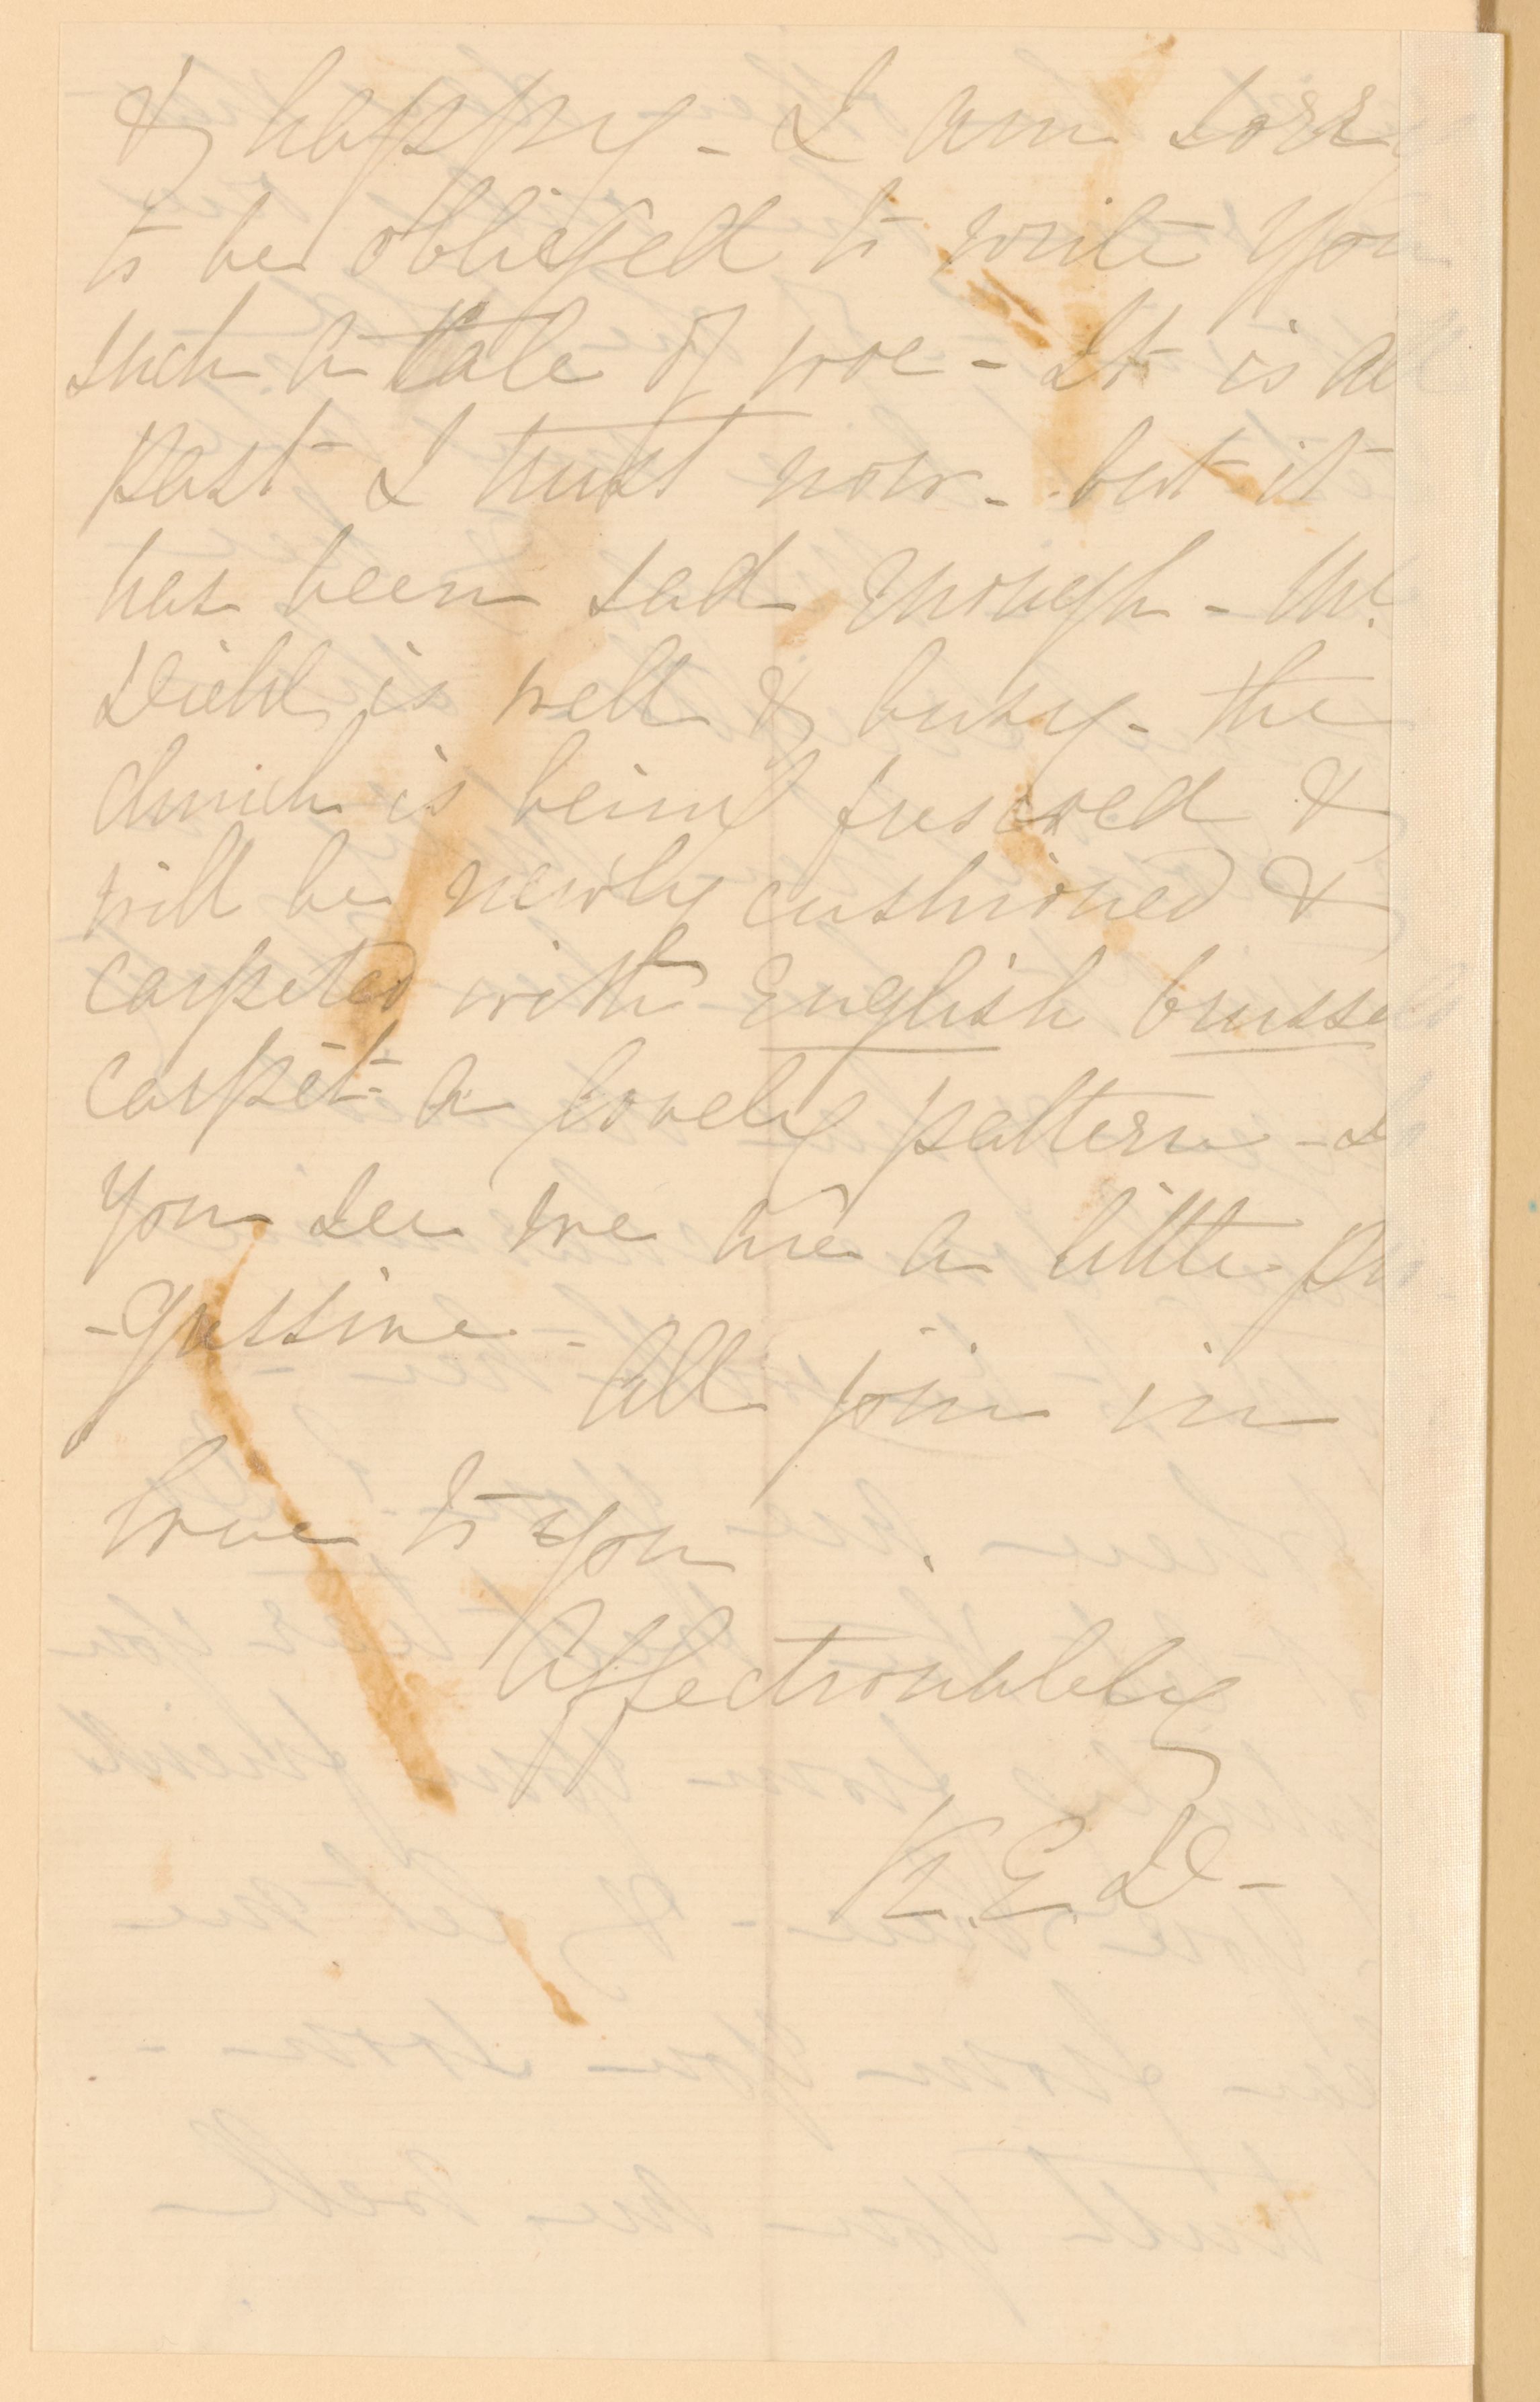 & happy - I am sorry
to be obliged to write you
such a tale of woe - It is all
past I trust now - but it
has been sad enough - Mr.
Diehl is well & busy - the
church is being frescoed &
will be newly cushioned &
carpeted with English brussels
carpet - a lovely pattern - So
you see we are a little pro
-gressive - All join in
love to you
Affectionately
K. E. D -